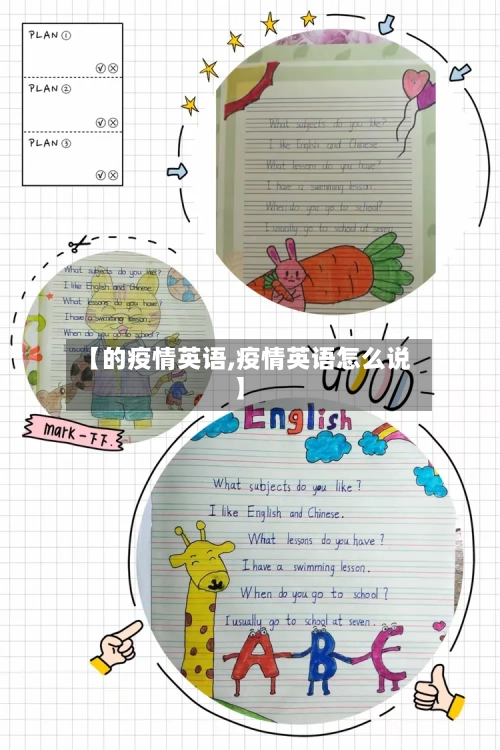 PLAN ①
PLAN ②
PLAN ③
What subjects do you like?
I like English and Chinese.
What lessons do you have?
I have a swimming lesson.
When do you go to school?
I usually go to school at seven.
What subjects do you like?
I like English and Chinese.
What lessons do you have?
I have a swimming lesson.
When do you go to school?
【的疫情英语,疫情英语怎么说
】
GOOD
mark一下下.
English
What subjects do you like?
I like English and Chinese.
What lessons do you have?
I have a swimming lesson.
When do you go to school?
I usually go to school at seven.
ABC